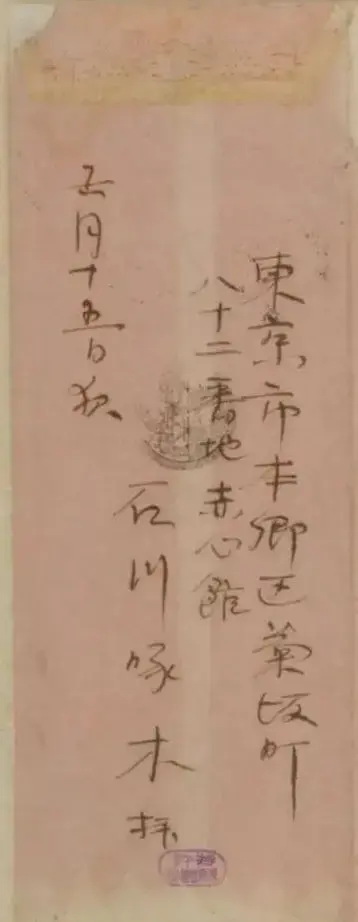 東京市本郷区菊坂町
八十二番地赤心館
石川啄木拝
五月十五日夜